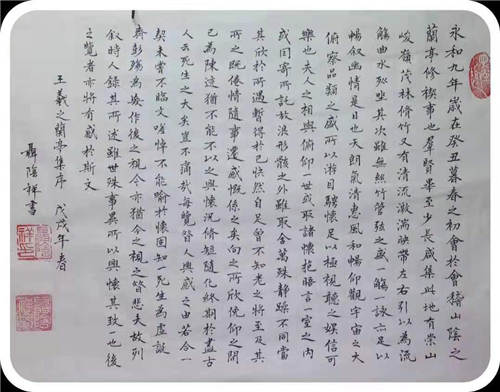 永和九年歲在癸丑暮春之初會於會稽山陰之
蘭亭修稧事也羣賢畢至少長咸集此地有崇山
峻嶺茂林脩竹又有清流激湍映帶左右引以為流
觴曲水列坐其次雖無絲竹管弦之盛一觴一詠亦足以
暢敘幽情是日也天朗氣清惠風和暢仰觀宇宙之大
俯察品類之盛所以遊目騁懷足以極視聽之娛信可
樂也夫人之相與俯仰一世或取諸懷抱晤言一室之內
或因寄所託放浪形骸之外雖取舍萬殊靜躁不同當
其欣於所遇暫得於己快然自足曾不知老之將至及其
所之既倦情隨事遷感慨係之矣向之所欣俛仰之間
已為陳迹猶不能不以之興懷況脩短隨化終期於盡古
人云死生之大矣豈不痛哉每覽昔人興感之由若合一
契未嘗不臨文嗟悼不能喻於懷固知一死生為虛誕
齊彭殤為妄作後之視今亦猶今之視昔悲夫故列
敘時人錄其所述雖世殊事異所以興懷其致一也後
之覽者亦將有感於斯文
王羲之蘭亭集序 戊戌年春
聶陰祥書